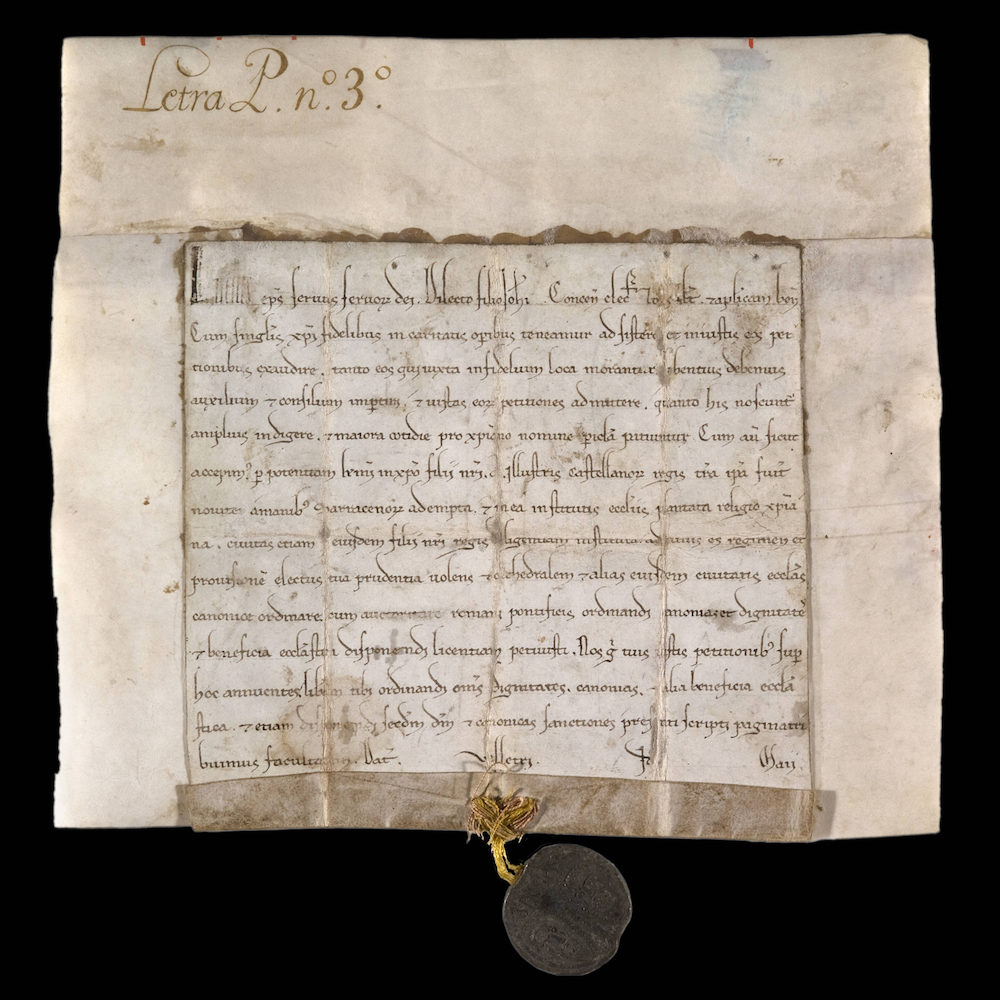 Letra P. nº. 3º.
eps servus servoꝝ dei. Dilecto filio Johi Concen elec salt. ⁊ aplicam ben
Cum singlis xpi fidelibus in caritatis opibus teneamur adsistere et in iustis eos peti
tionibus exaudire, tanto eos qui iuxta infidelium loca morantur debemus
auxilium ⁊ consilium impturi, ⁊ iustas eoꝝ petitiones admittere, quanto his noscunt
amplius indigere, ⁊ maiora cotidie pro xpiano nomine picla patiuntur. Cum aut sicut
accepim⁹, p potentiam krmi in xpo filij nri, Illustris Castellanoꝝ regis tra ipa fuit
noviter a manib⁹ Sarracenoꝝ adempta, ⁊ in ea institutis ecclijs, plantata religio xpia
na, civitas etiam eiusdem filij nri regis es regimen et
provisione electus, tua prudentia volens cathedralem ⁊ alias eiusdem civitatis ecclas
canonice ordinare, cum auctoritate romani pontificis ordinandi canonias et dignitate
⁊ beneficia ecclastica disponendi licentiam petivisti. Nos g tuis iustis petitionib⁹ sup
hoc annuentes, liberam tibi ordinandi omis dignitates, canonias, ⁊ alia beneficia eccla
stica, ⁊ etiam disponendi secdm dm ⁊ canonicas sanctiones presenti scripti pagina tri
buimus facultatem. Dat. Velletri. Maij.